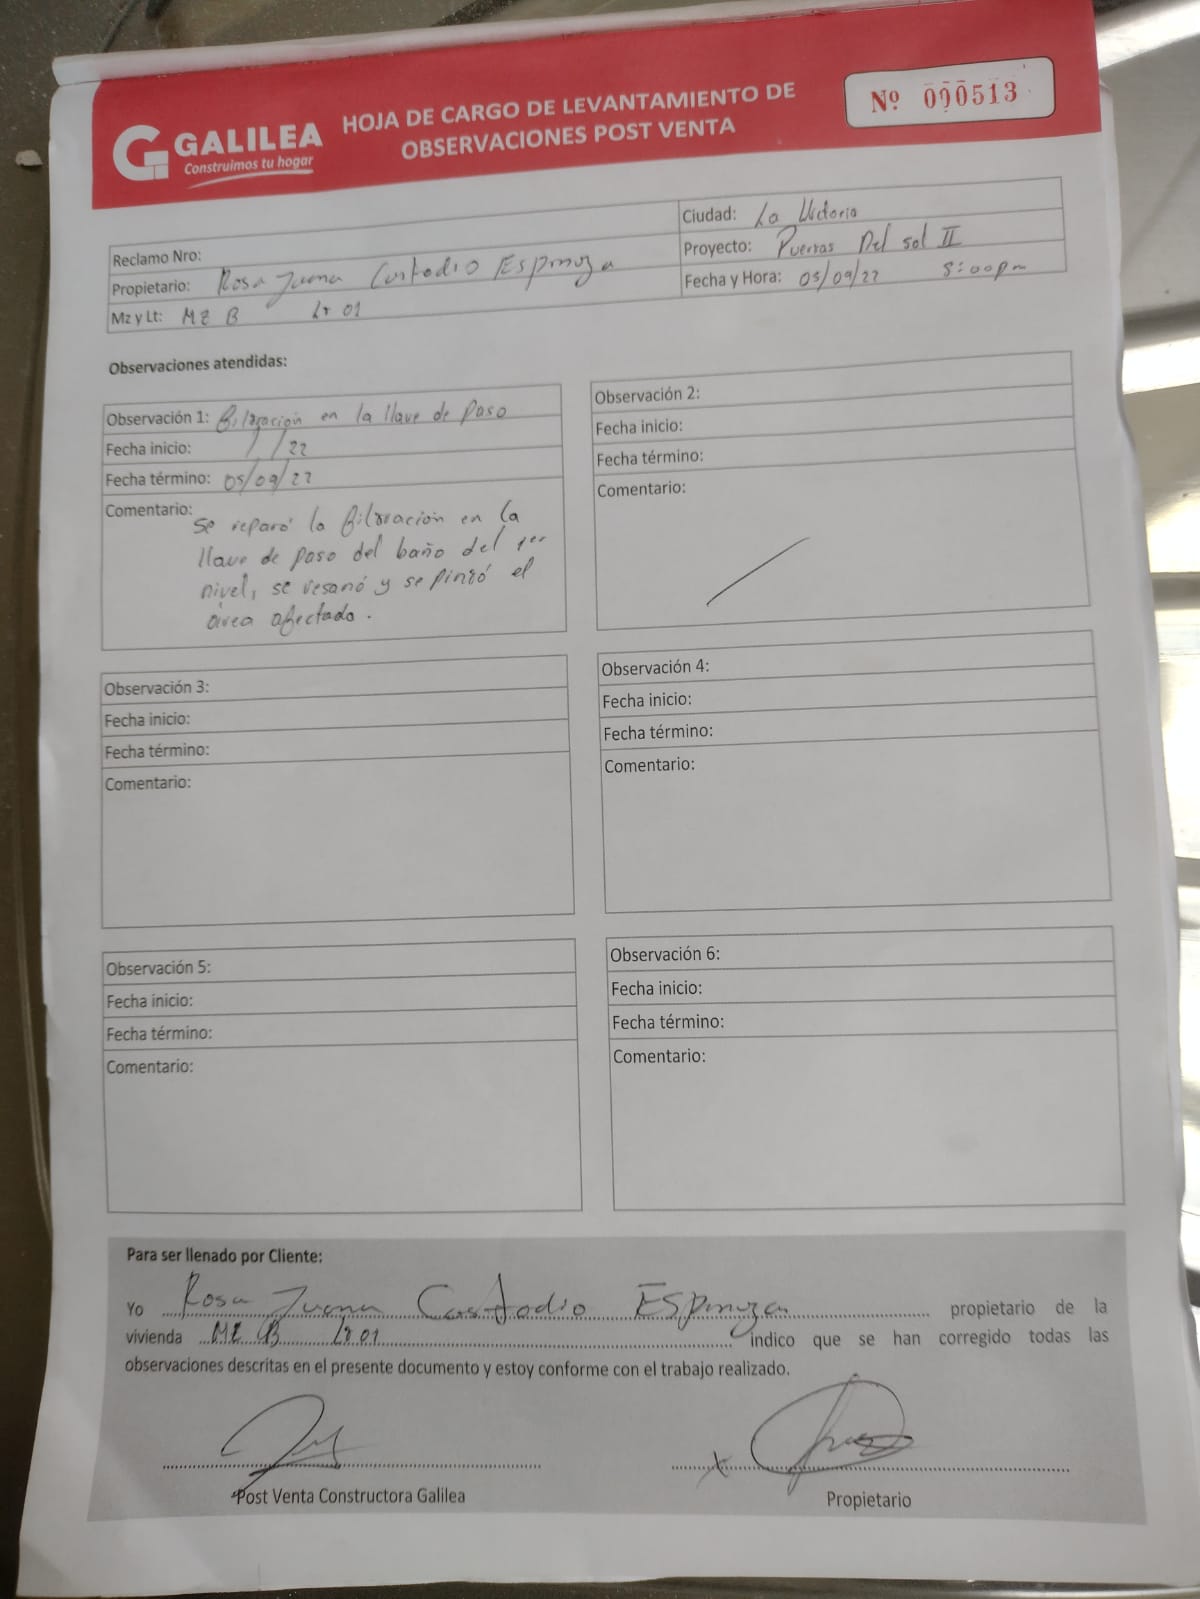 GALILEA
Construimos tu hogar
HOJA DE CARGO DE LEVANTAMIENTO DE
OBSERVACIONES POST VENTA
Nº 000513
Reclamo Nro:
Propietario: Rosa Juana Custodio Espinoza
Mz y Lt: MZ B Lt 01
Ciudad: La Victoria
Proyecto: Puertas Del sol II
Fecha y Hora: 05/09/22 5:00pm
Observaciones atendidas:
Observación 1: Filtración en la llave de paso
Fecha inicio: / /22
Fecha término: 05/09/22
Comentario: Se reparó la filtración en la
llave de paso del baño del 1er
nivel, se resanó y se pintó el
área afectado.
Observación 2:
Fecha inicio:
Fecha término:
Comentario:
Observación 3:
Fecha inicio:
Fecha término:
Comentario:
Observación 4:
Fecha inicio:
Fecha término:
Comentario:
Observación 5:
Fecha inicio:
Fecha término:
Comentario:
Observación 6:
Fecha inicio:
Fecha término:
Comentario:
Para ser llenado por Cliente:
Yo Rosa Juana Custodio Espinoza propietario de la
vivienda MZ B Lt 01 indico que se han corregido todas las
observaciones descritas en el presente documento y estoy conforme con el trabajo realizado.
Post Venta Constructora Galilea
x
Propietario